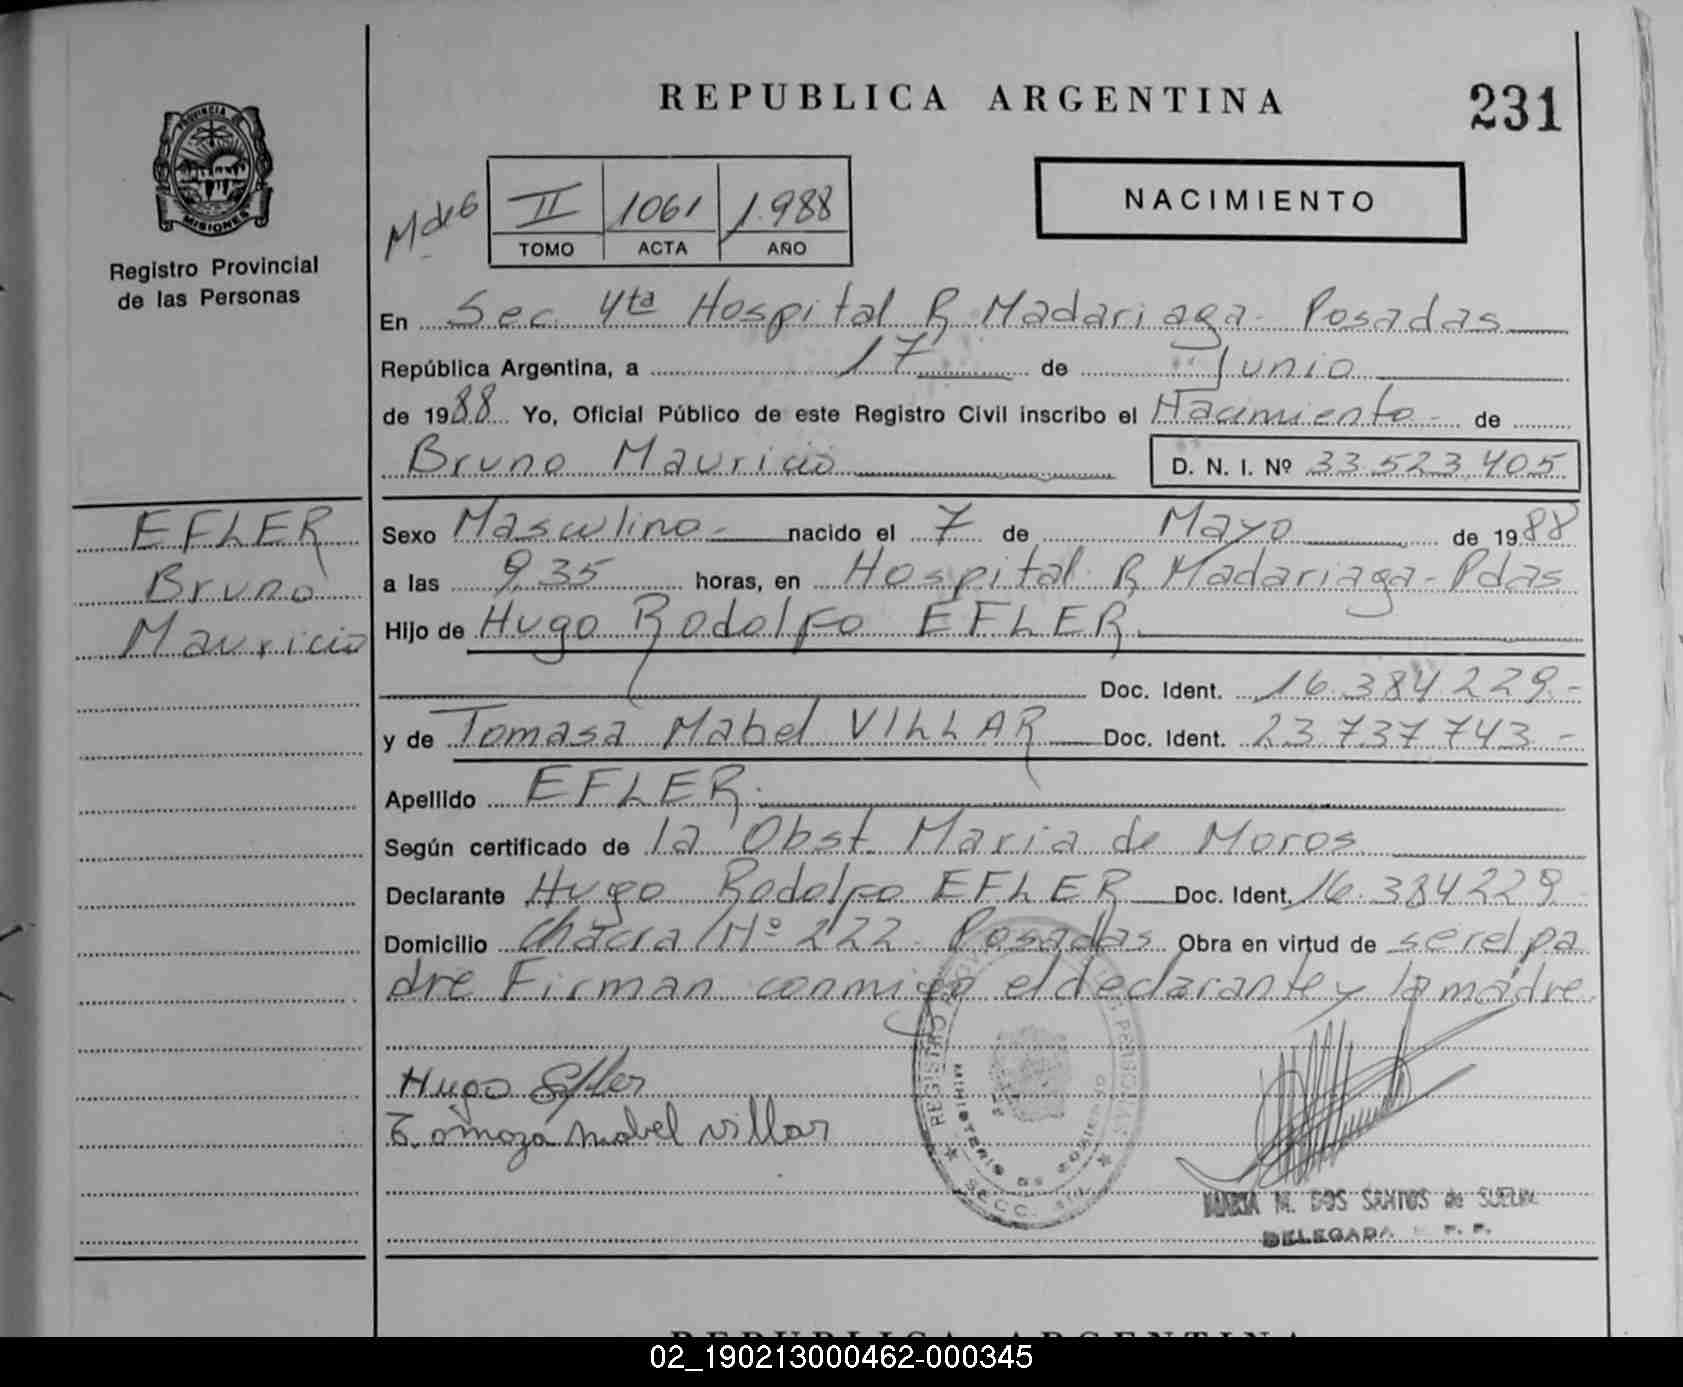 REPUBLICA ARGENTINA
231
PROVINCIA DE
MISIONES
Registro Provincial
de las Personas
II 1061 1.988
TOMO ACTA AÑO
NACIMIENTO
En Sec. 4ta Hospital R. Madariaga - Posadas
República Argentina, a 17 de Junio
de 1988 Yo, Oficial Público de este Registro Civil inscribo el Nacimiento - de
Bruno Mauricio D. N. I. Nº 33 523 405
EFLER
Bruno
Mauricio
Sexo Masculino - nacido el 7 de Mayo de 1988
a las 9,35 horas, en Hospital R. Madariaga - Pdas
Hijo de Hugo Rodolfo EFLER.
Doc. Ident. 16.384.229.-
y de Tomasa Mabel VILLAR Doc. Ident. 23 737 743 -
Apellido EFLER.
Según certificado de la Obst. Maria de Moros
Declarante Hugo Rodolfo EFLER Doc. Ident. 16.384229
Domicilio Chacra Nº 222. Posadas Obra en virtud de ser el pa
dre Firman conmigo el declarante y la madre.
Hugo Efler
Tomaza Mabel villar
REGISTRO PROV. DE LAS PERSONAS
MINISTERIO DE GOBIERNO
SECC. 4ta.
MARIA M. DOS SANTOS de
DELEGADA
REPUBLICA ARGENTINA
02_190213000462-000345